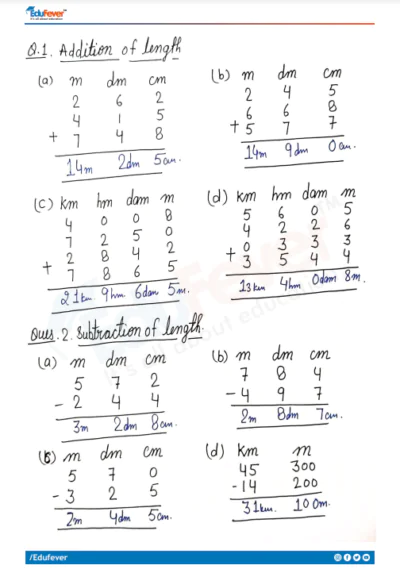 EduFever
Q.1. Addition of length
(a) m dm cm
2 6 2
4 1 5
+ 7 4 8
14m 2dm 5cm.
(b) m dm cm
2 4 5
6 6 8
+ 5 7 7
14m 9dm 0cm.
(c) km hm dam m
4 0 0 8
7 2 5 0
2 8 4 2
+ 7 8 6 5
21km 9hm 6dam 5m.
(d) km hm dam m
5 6 0 5
4 2 2 6
0 3 3 3
+ 3 5 4 4
13km 4hm 0dam 8m.
Ques. 2. Subtraction of length.
(a) m dm cm
5 7 2
- 2 4 4
3m 2dm 8cm.
(b) m dm cm
7 8 4
- 4 9 7
2m 8dm 7cm.
(c) m dm cm
5 7 0
- 3 2 5
2m 4dm 5cm.
(d) Km m
45 300
-14 200
31km. 100m.
/Edufever